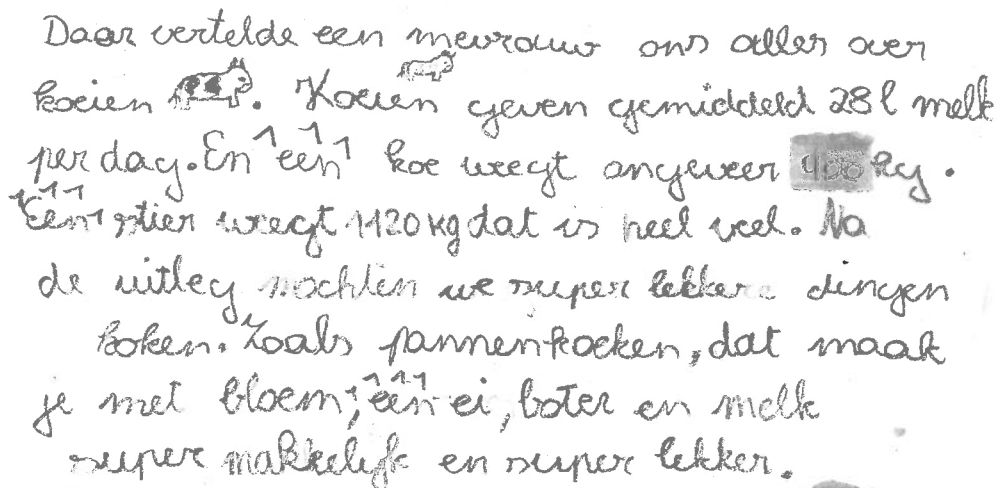 Daar vertelde een mevrouw ons alles over
koeien. Koeien geven gemiddeld 28l melk
per dag. En één koe weegt ongeveer 900 kg.
Één stier weegt 1120 kg dat is heel veel. Na
de uitleg mochten we super lekkere dingen
koken. Zoals pannenkoeken, dat maak
je met bloem, één ei, boter en melk
super makkelijk en super lekker.